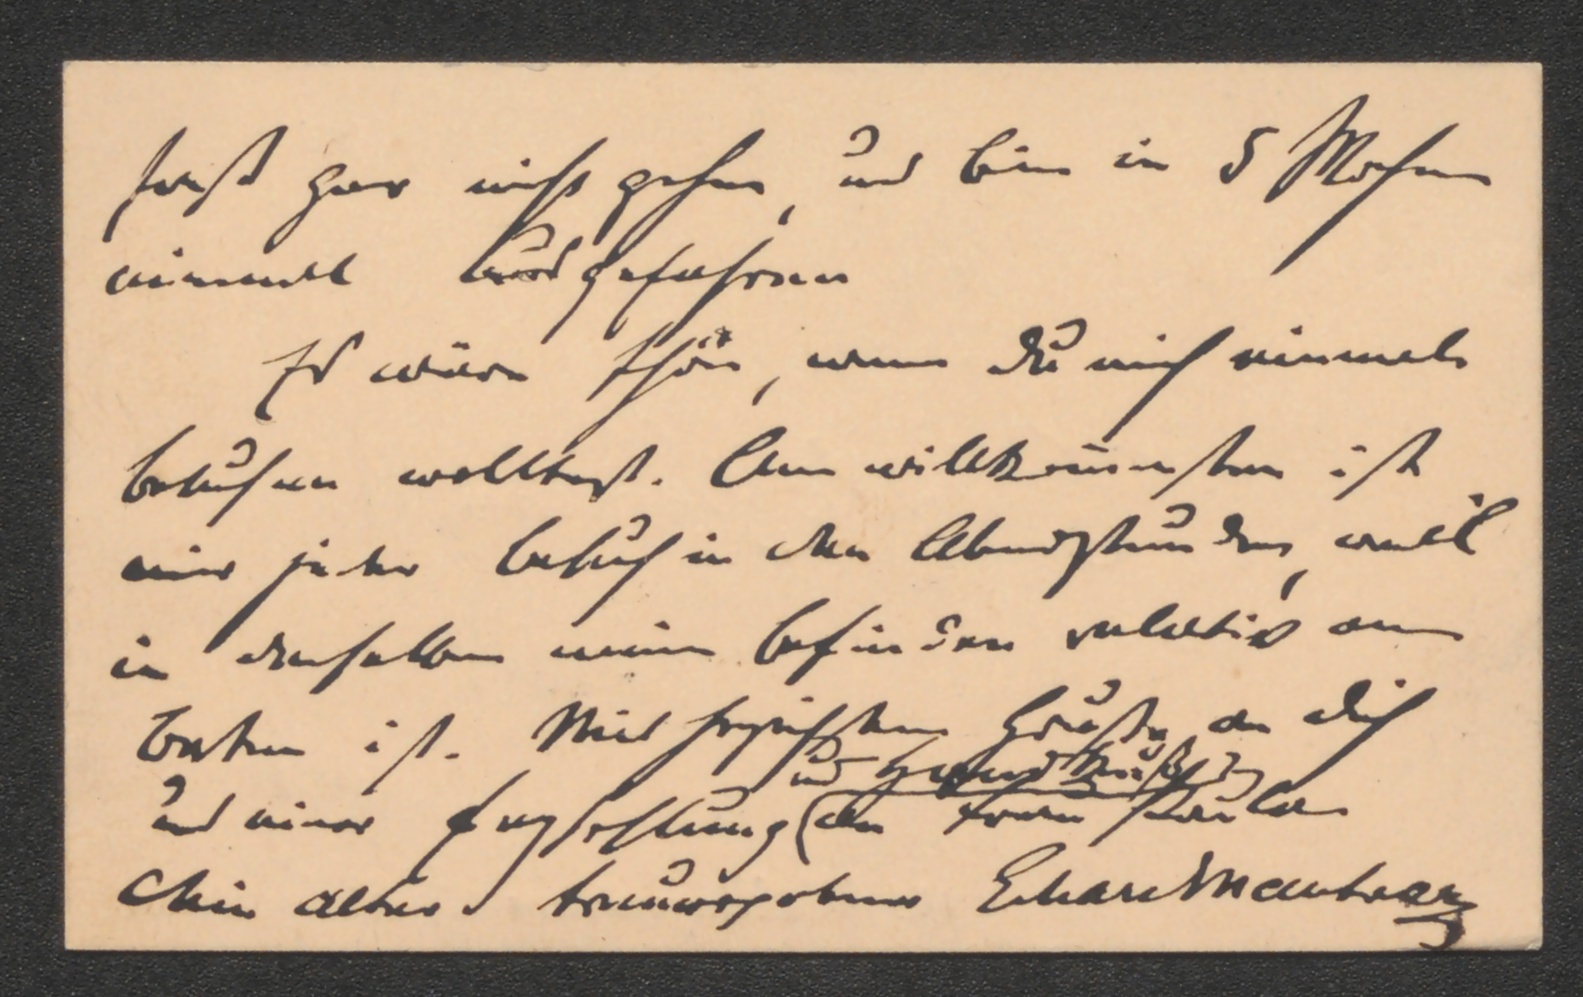 fast gar nicht gehen, und bin in 5 Wochen
einmal ausgefahren
Es wäre schön, wenn Du mich einmal
besuchen wolltest. Am willkommensten ist
mir jeder Besuch in den Abendstunden, weil
in denselben mein Befinden relativ am
besten ist. Mit herzlichsten Grüßen an Dich
und Handkuß
und einer Empfehlung (an Frau Paula
Dein alter treuergebener Eduard Mautner